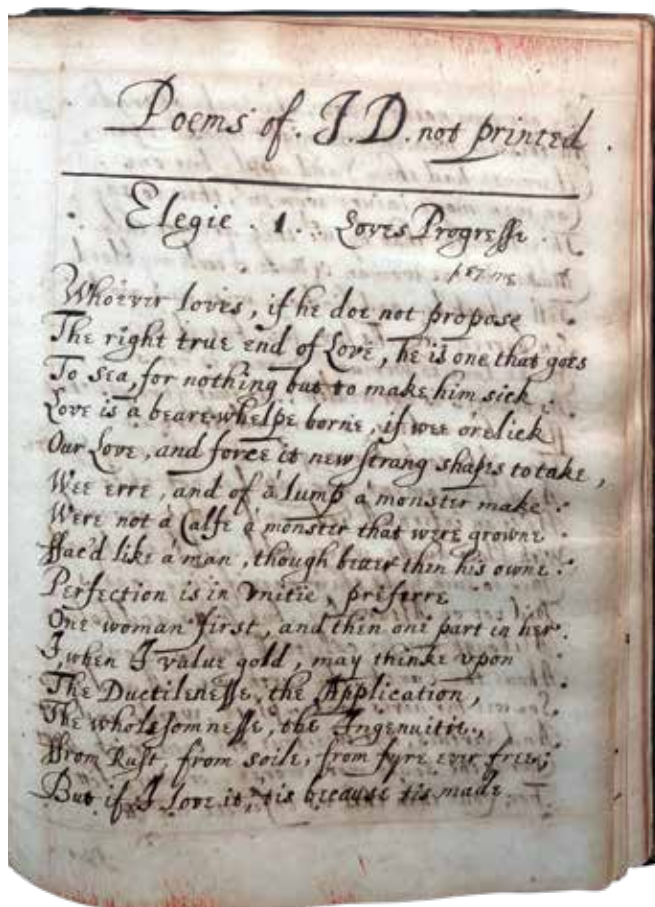 Poems of. J. D. not printed.
Elegie. 1. Loves Progresse.
Whoever loves, if he doe not propose
The right true end of Love, he is one that goes
To sea, for nothing but to make him sick.
Love is a beare-whelpe borne, if wee orelick
Our Love, and force it new strang shapes to take,
Wee erre, and of a lump a monster make.
Were not a Calfe a monster that were growne
ffac'd like a man, though better then his owne.
Perfection is in Vnitie, preferre
One woman first, and then one part in her.
I, when I value gold, may thinke vpon
The Ductilenesse, the Application,
The wholesomnesse, the Ingenuitie,
ffrom Rust, from soile, from fyre ever free;
But if I Love it, tis because tis made